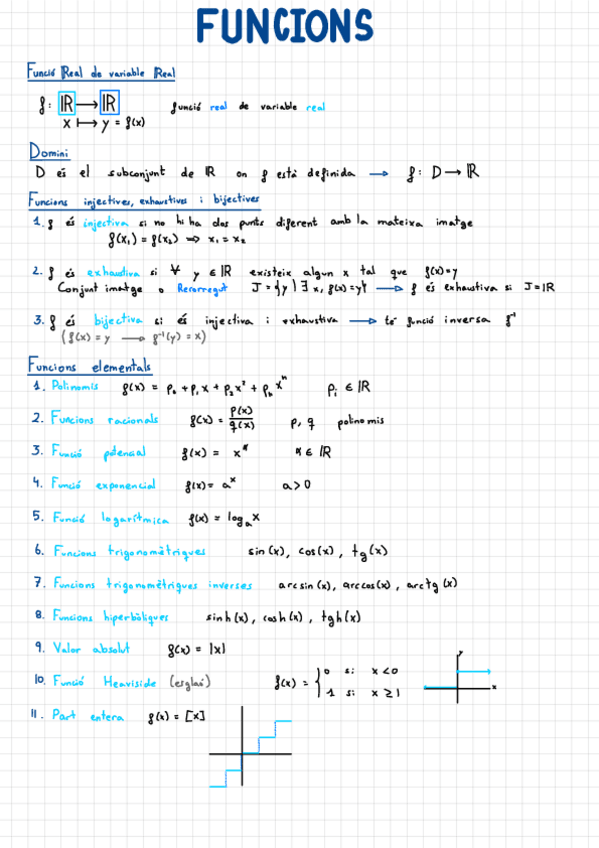 FUNCIONS
Funció Real de variable Real
f: ℝ ⟶ ℝ funció real de variable real
x ⟼ y = f(x)
Domini
D és el subconjunt de ℝ on f està definida ⟶ f: D ⟶ ℝ
Funcions injectives, exhaustives i bijectives
1. f és injectiva si no hi ha dos punts diferent amb la mateixa imatge
f(x₁) = f(x₂) ⟹ x₁ = x₂
2. f és exhaustiva si ∀ y ∈ ℝ existeix algun x tal que f(x)=y
Conjunt imatge o Recorregut J = {y | ∃ x, f(x) = y} ⟶ f és exhaustiva si J = ℝ
3. f és bijectiva si és injectiva i exhaustiva ⟶ té funció inversa f⁻¹
(f(x) = y ⟶ f⁻¹(y) = x)
Funcions elementals
1. Polinomis f(x) = p₀ + p₁x + p₂x² + pₙxⁿ pᵢ ∈ ℝ
2. Funcions racionals f(x) = p(x)/q(x) p, q polinomis
3. Funció potencial f(x) = x^α α ∈ ℝ
4. Funció exponencial f(x) = aˣ a > 0
5. Funció logarítmica f(x) = logₐ x
6. Funcions trigonomètriques sin(x), cos(x), tg(x)
7. Funcions trigonomètriques inverses arcsin(x), arccos(x), arctg(x)
8. Funcions hiperbòliques sinh(x), cosh(x), tgh(x)
9. Valor absolut f(x) = |x|
10. Funció Heaviside (esglaó) f(x) = { 0 si x < 0
1 si x ≥ 1
y
x
11. Part entera f(x) = [x]